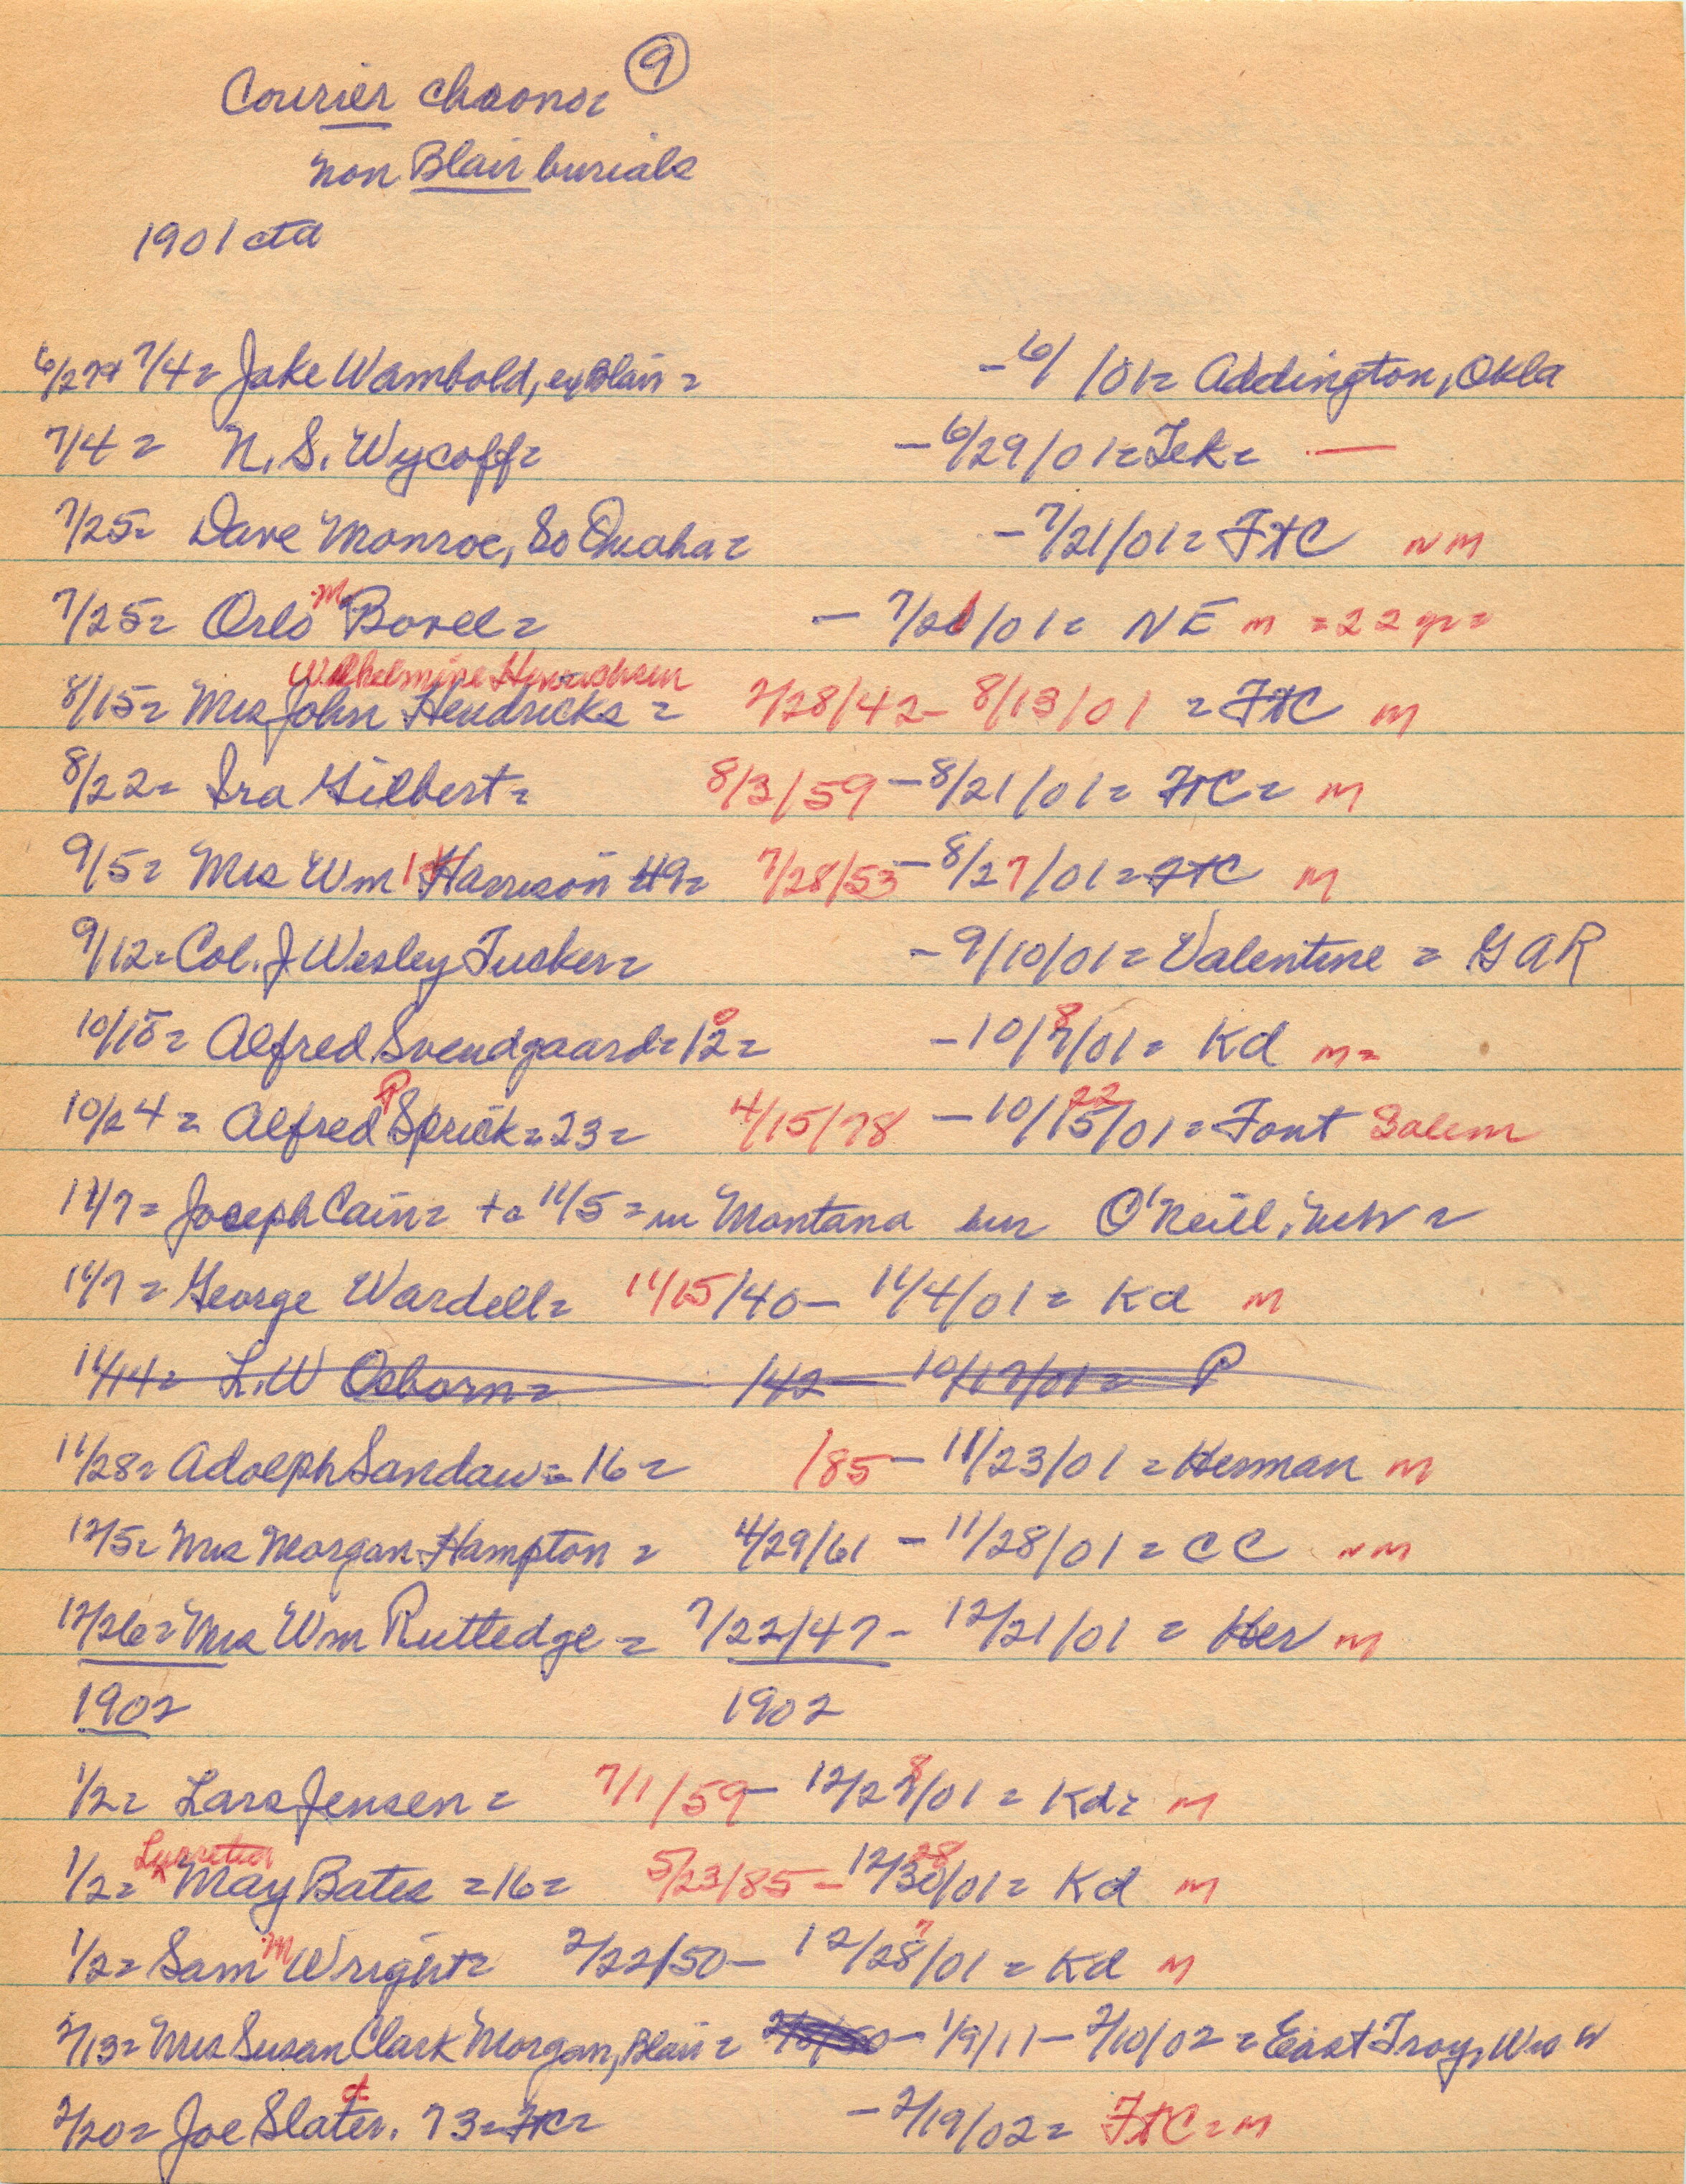 9
Courier chronol
non Blair burials
1901 ctd
6/27+ 7/4= Jake Wambold, ex Blair = -6/ /01= Addington, Okla
7/4= N. S. Wycoff= -6/29/01=Tek= —
7/25= Dave Monroe, So Omaha= -7/21/01= FtC NM
7/25= Orlo M. Bovee= - 7/21/01= NE m =22 yr=
Wilhelmine Hinrichsen
8/15= Mrs John Hendricks = 2/28/42- 8/13/01 = FtC m
8/22= Ira Gilbert= 8/3/59 -8/21/01= FtC= m
9/5= Mrs Wm H Harrison 49= 7/28/53 -8/27/01= FtC m
9/12= Col. J. Wesley Tucker= -9/10/01= Valentine = GAR
10/10= Alfred Svendgaard=12= -10/8/01= Kd m=
10/24= Alfred P Sprick=23= 4/15/78 -10/22/01= Font Salem
11/7= Joseph Cain= to 11/5= in Montana bur O'Neill, Neb =
11/7= George Wardell= 11/15/40- 11/4/01= Kd m
11/14= L.W Osborn= /42- 10/17/01= P
11/28= Adolph Sandau=16= /85- 11/23/01= Herman m
12/5= Mrs Morgan Hampton = 4/29/61 - 11/28/01= CC NM
12/26= Mrs Wm Rutledge = 7/22/47- 12/21/01 = Her m
1902 1902
1/2= Lars Jensen = 7/1/59- 12/28/01 = Kd= m
1/2= May Bates =16= 5/23/85- 12/28/01= Kd m
1/2= Sam M Wright= 2/22/50- 12/27/01 = Kd m
2/13= Mrs Susan Clark Morgan, Blair= 1/9/11- 2/10/02 = East Troy, Wis
2/20= Joe Slater. 73=FtC= -2/19/02= FtC=m